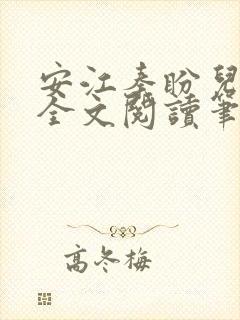 安江秦盼兒
全文閱讀筆
高冬梅